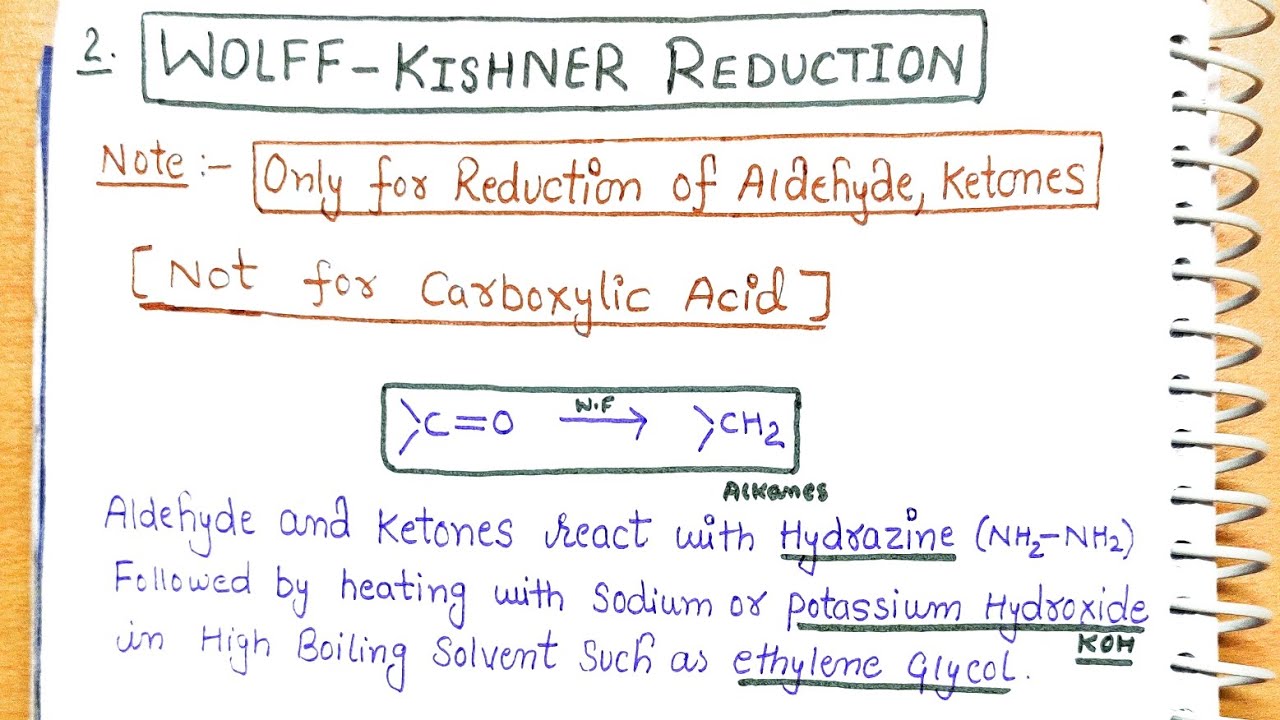 2. WOLFF-KISHNER REDUCTION
Note :- Only for Reduction of Aldehyde, Ketones
[Not for Carboxylic Acid]
>C=O W.F → >CH2
Alkanes
Aldehyde and Ketones react with Hydrazine (NH2-NH2)
Followed by heating with Sodium or potassium Hydroxide
KOH
in High Boiling Solvent Such as ethylene Glycol.